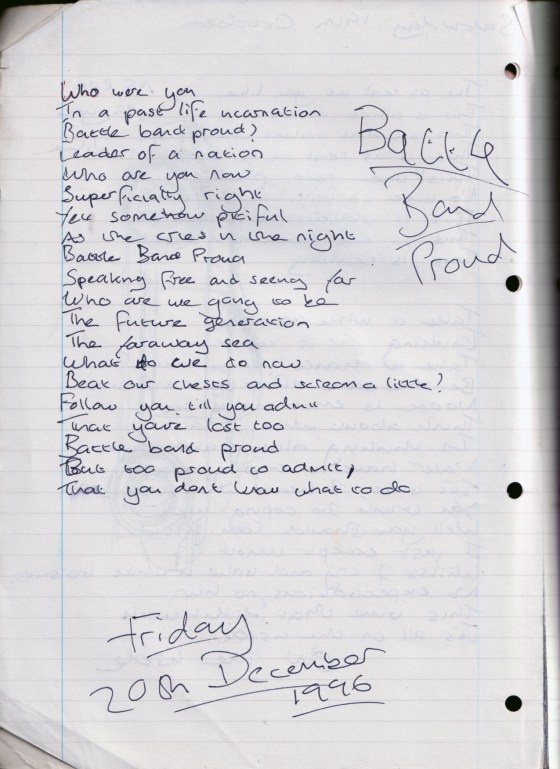 Who were you
In a past life incarnation
Battle band proud?
Leader of a nation
Who are you now
Superficially right
Yet somehow pitiful
As she cries in the night
Battle Band Proud
Speaking Free and seeing far
Who are we going to be
The Future generation
The faraway sea
What do we do now
Beat our chests and scream a little?
Follow you till you admit
That youve lost too
Battle band proud
But too proud to admit,
That you dont know what to do
Battle
Band
Proud
Friday
20th December
1996